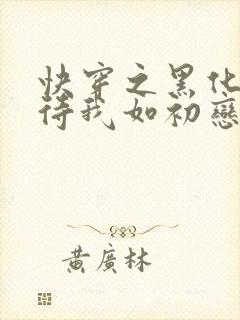 快穿之黑化
待我如初戀
黃廣林